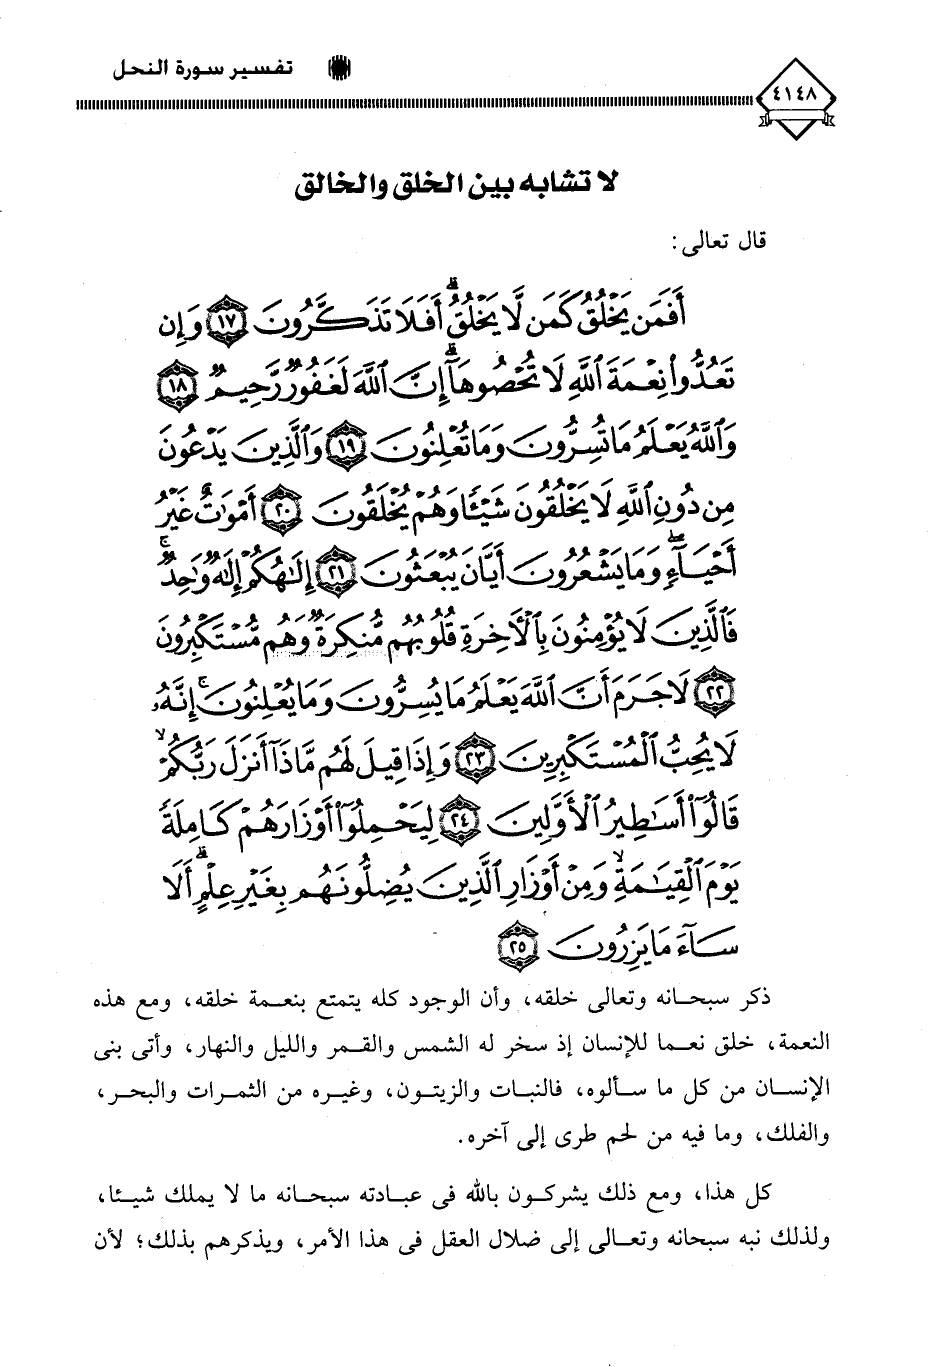 تفسير سورة النحل
٤١٤٨
لا تشابه بين الخلق والخالق
قال تعالى:
أَفَمَن يَخْلُقُ كَمَن لَّا يَخْلُقُ ۗ أَفَلَا تَذَكَّرُونَ ﴿١٧﴾ وَإِن
تَعُدُّوا۟ نِعْمَةَ ٱللَّهِ لَا تُحْصُوهَآ ۗ إِنَّ ٱللَّهَ لَغَفُورٌ رَّحِيمٌ ﴿١٨﴾
وَٱللَّهُ يَعْلَمُ مَا تُسِرُّونَ وَمَا تُعْلِنُونَ ﴿١٩﴾ وَٱلَّذِينَ يَدْعُونَ
مِن دُونِ ٱللَّهِ لَا يَخْلُقُونَ شَيْـًٔا وَهُمْ يُخْلَقُونَ ﴿٢٠﴾ أَمْوَٰتٌ غَيْرُ
أَحْيَآءٍ ۖ وَمَا يَشْعُرُونَ أَيَّانَ يُبْعَثُونَ ﴿٢١﴾ إِلَـٰهُكُمْ إِلَـٰهٌ وَٰحِدٌ ۚ
فَٱلَّذِينَ لَا يُؤْمِنُونَ بِٱلْـَٔاخِرَةِ قُلُوبُهُم مُّنكِرَةٌ وَهُم مُّسْتَكْبِرُونَ
﴿٢٢﴾ لَا جَرَمَ أَنَّ ٱللَّهَ يَعْلَمُ مَا يُسِرُّونَ وَمَا يُعْلِنُونَ ۚ إِنَّهُۥ
لَا يُحِبُّ ٱلْمُسْتَكْبِرِينَ ﴿٢٣﴾ وَإِذَا قِيلَ لَهُم مَّاذَآ أَنزَلَ رَبُّكُمْ ۙ
قَالُوٓا۟ أَسَـٰطِيرُ ٱلْأَوَّلِينَ ﴿٢٤﴾ لِيَحْمِلُوٓا۟ أَوْزَارَهُمْ كَامِلَةً
يَوْمَ ٱلْقِيَـٰمَةِ ۙ وَمِنْ أَوْزَارِ ٱلَّذِينَ يُضِلُّونَهُم بِغَيْرِ عِلْمٍ ۗ أَلَا
سَآءَ مَا يَزِرُونَ ﴿٢٥﴾
ذكر سبحانه وتعالى خلقه، وأن الوجود كله يتمتع بنعمة خلقه، ومع هذه
النعمة، خلق نعما للإنسان إذ سخر له الشمس والقمر والليل والنهار، وأتى بنى
الإنسان من كل ما سألوه، فالنبات والزيتون، وغيره من الثمرات والبحر،
والفلك، وما فيه من لحم طرى إلى آخره.
كل هذا، ومع ذلك يشركون بالله فى عبادته سبحانه ما لا يملك شيئا،
ولذلك نبه سبحانه وتعالى إلى ضلال العقل فى هذا الأمر، ويذكرهم بذلك؛ لأن